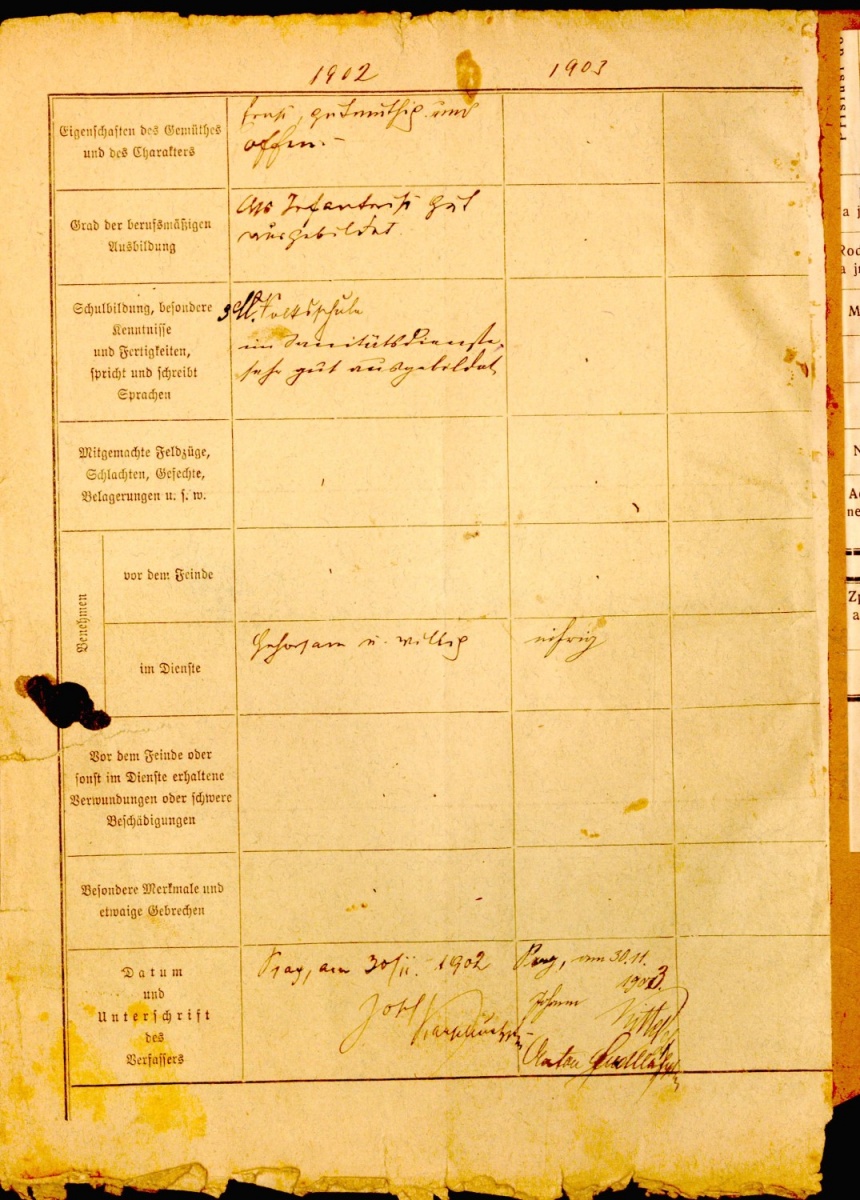 1902 1903
Eigenschaften des Gemüthes
und des Charakters
ernst, gutmüthig und
offen.-
Grad der berufsmäßigen
Ausbildung
Als Infanterist gut
ausgebildet.
Schulbildung, besondere
Kenntnisse
und Fertigkeiten,
spricht und schreibt
Sprachen
3 Kl. Volksschule
im Sanitätsdienste
sehr gut ausgebildet
Mitgemachte Feldzüge,
Schlachten, Gefechte,
Belagerungen u. s. w.
Benehmen
vor dem Feinde
im Dienste
Gehorsam u. willig
eifrig
Vor dem Feinde oder
sonst im Dienste erhaltene
Verwundungen oder schwere
Beschädigungen
Besondere Merkmale und
etwaige Gebrechen
Datum
und
Unterschrift
des
Verfassers
Prag, am 30/11. 1902
Josef
Prag, am 30.11.
1903
Johann
Anton